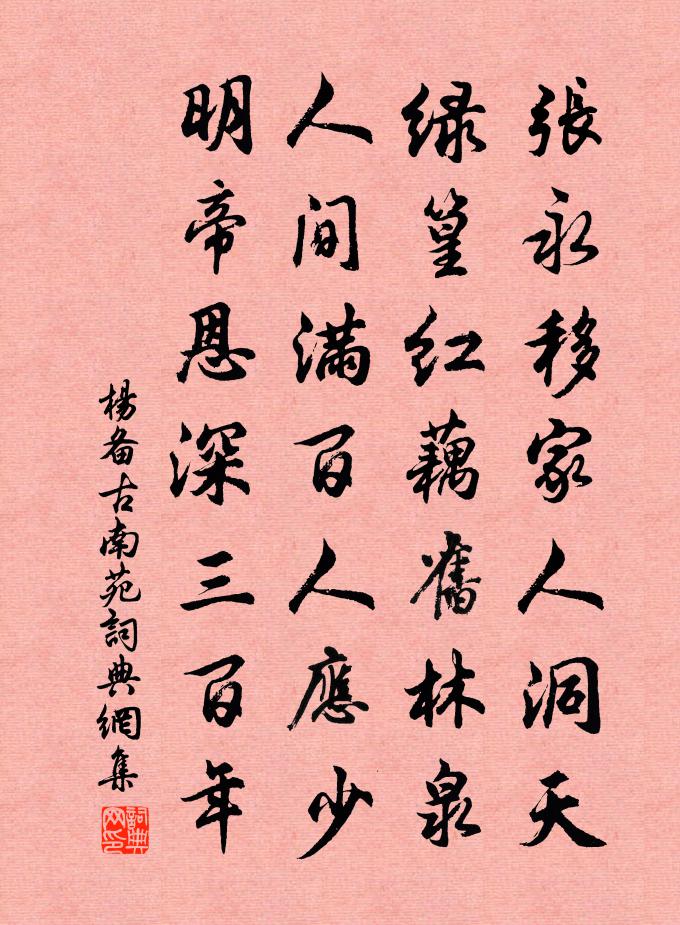 張永移家人洞天
绿篁红藕舊林泉
人间满百人應少
明帝恩深三百年
楊备古南苑詞典網集
詞典网印